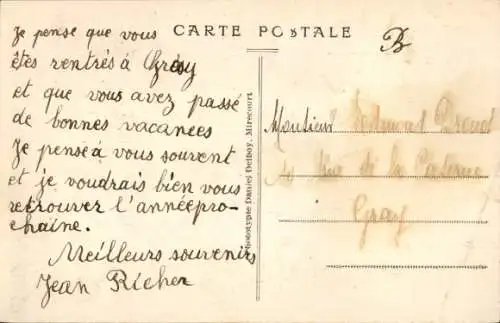 CARTE POSTALE
B
Je pense que vous
êtes rentrés à Gray
et que vous avez passé
de bonnes vacances
Je pense à vous souvent
et je voudrais bien vous
retrouver l'année pro-
chaine.
Meilleurs souvenirs
Jean Richer
Phototypie Daniel Delboy, Mirecourt
Monsieur
Rue de la
Gray